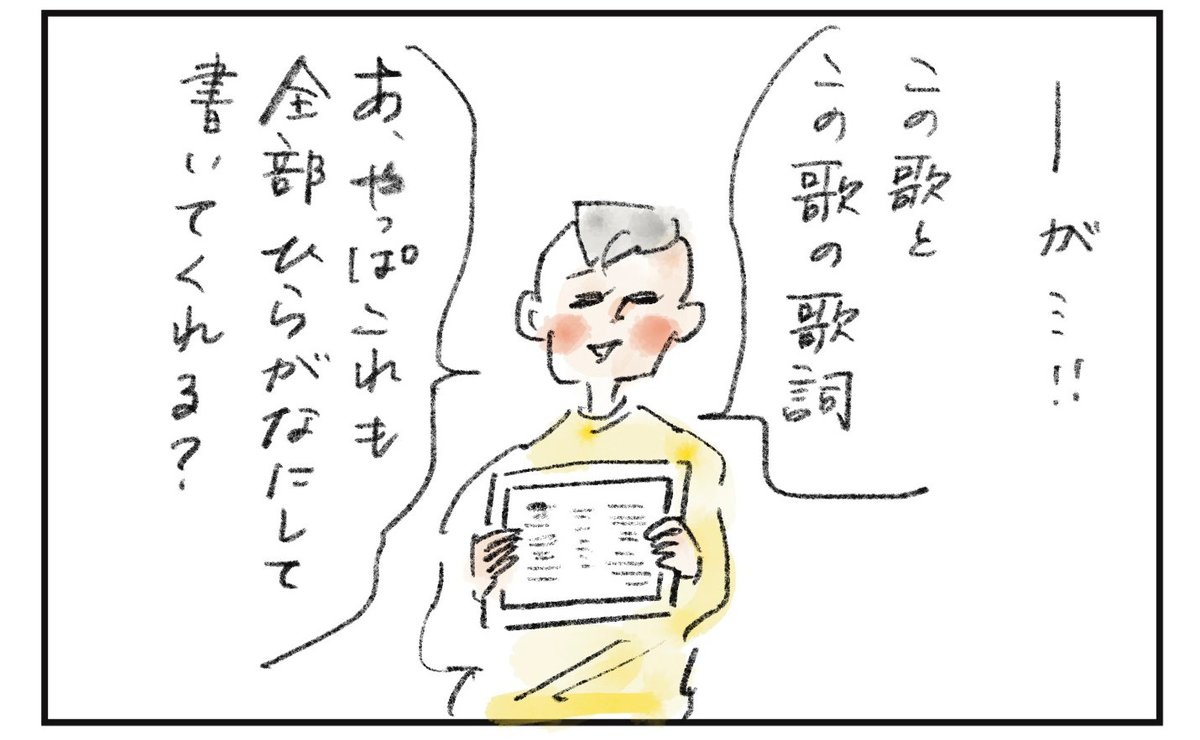 ―が…!!
この歌と
この歌の歌詞
あ、やっぱこれも
全部ひらがなにして
書いてくれる?